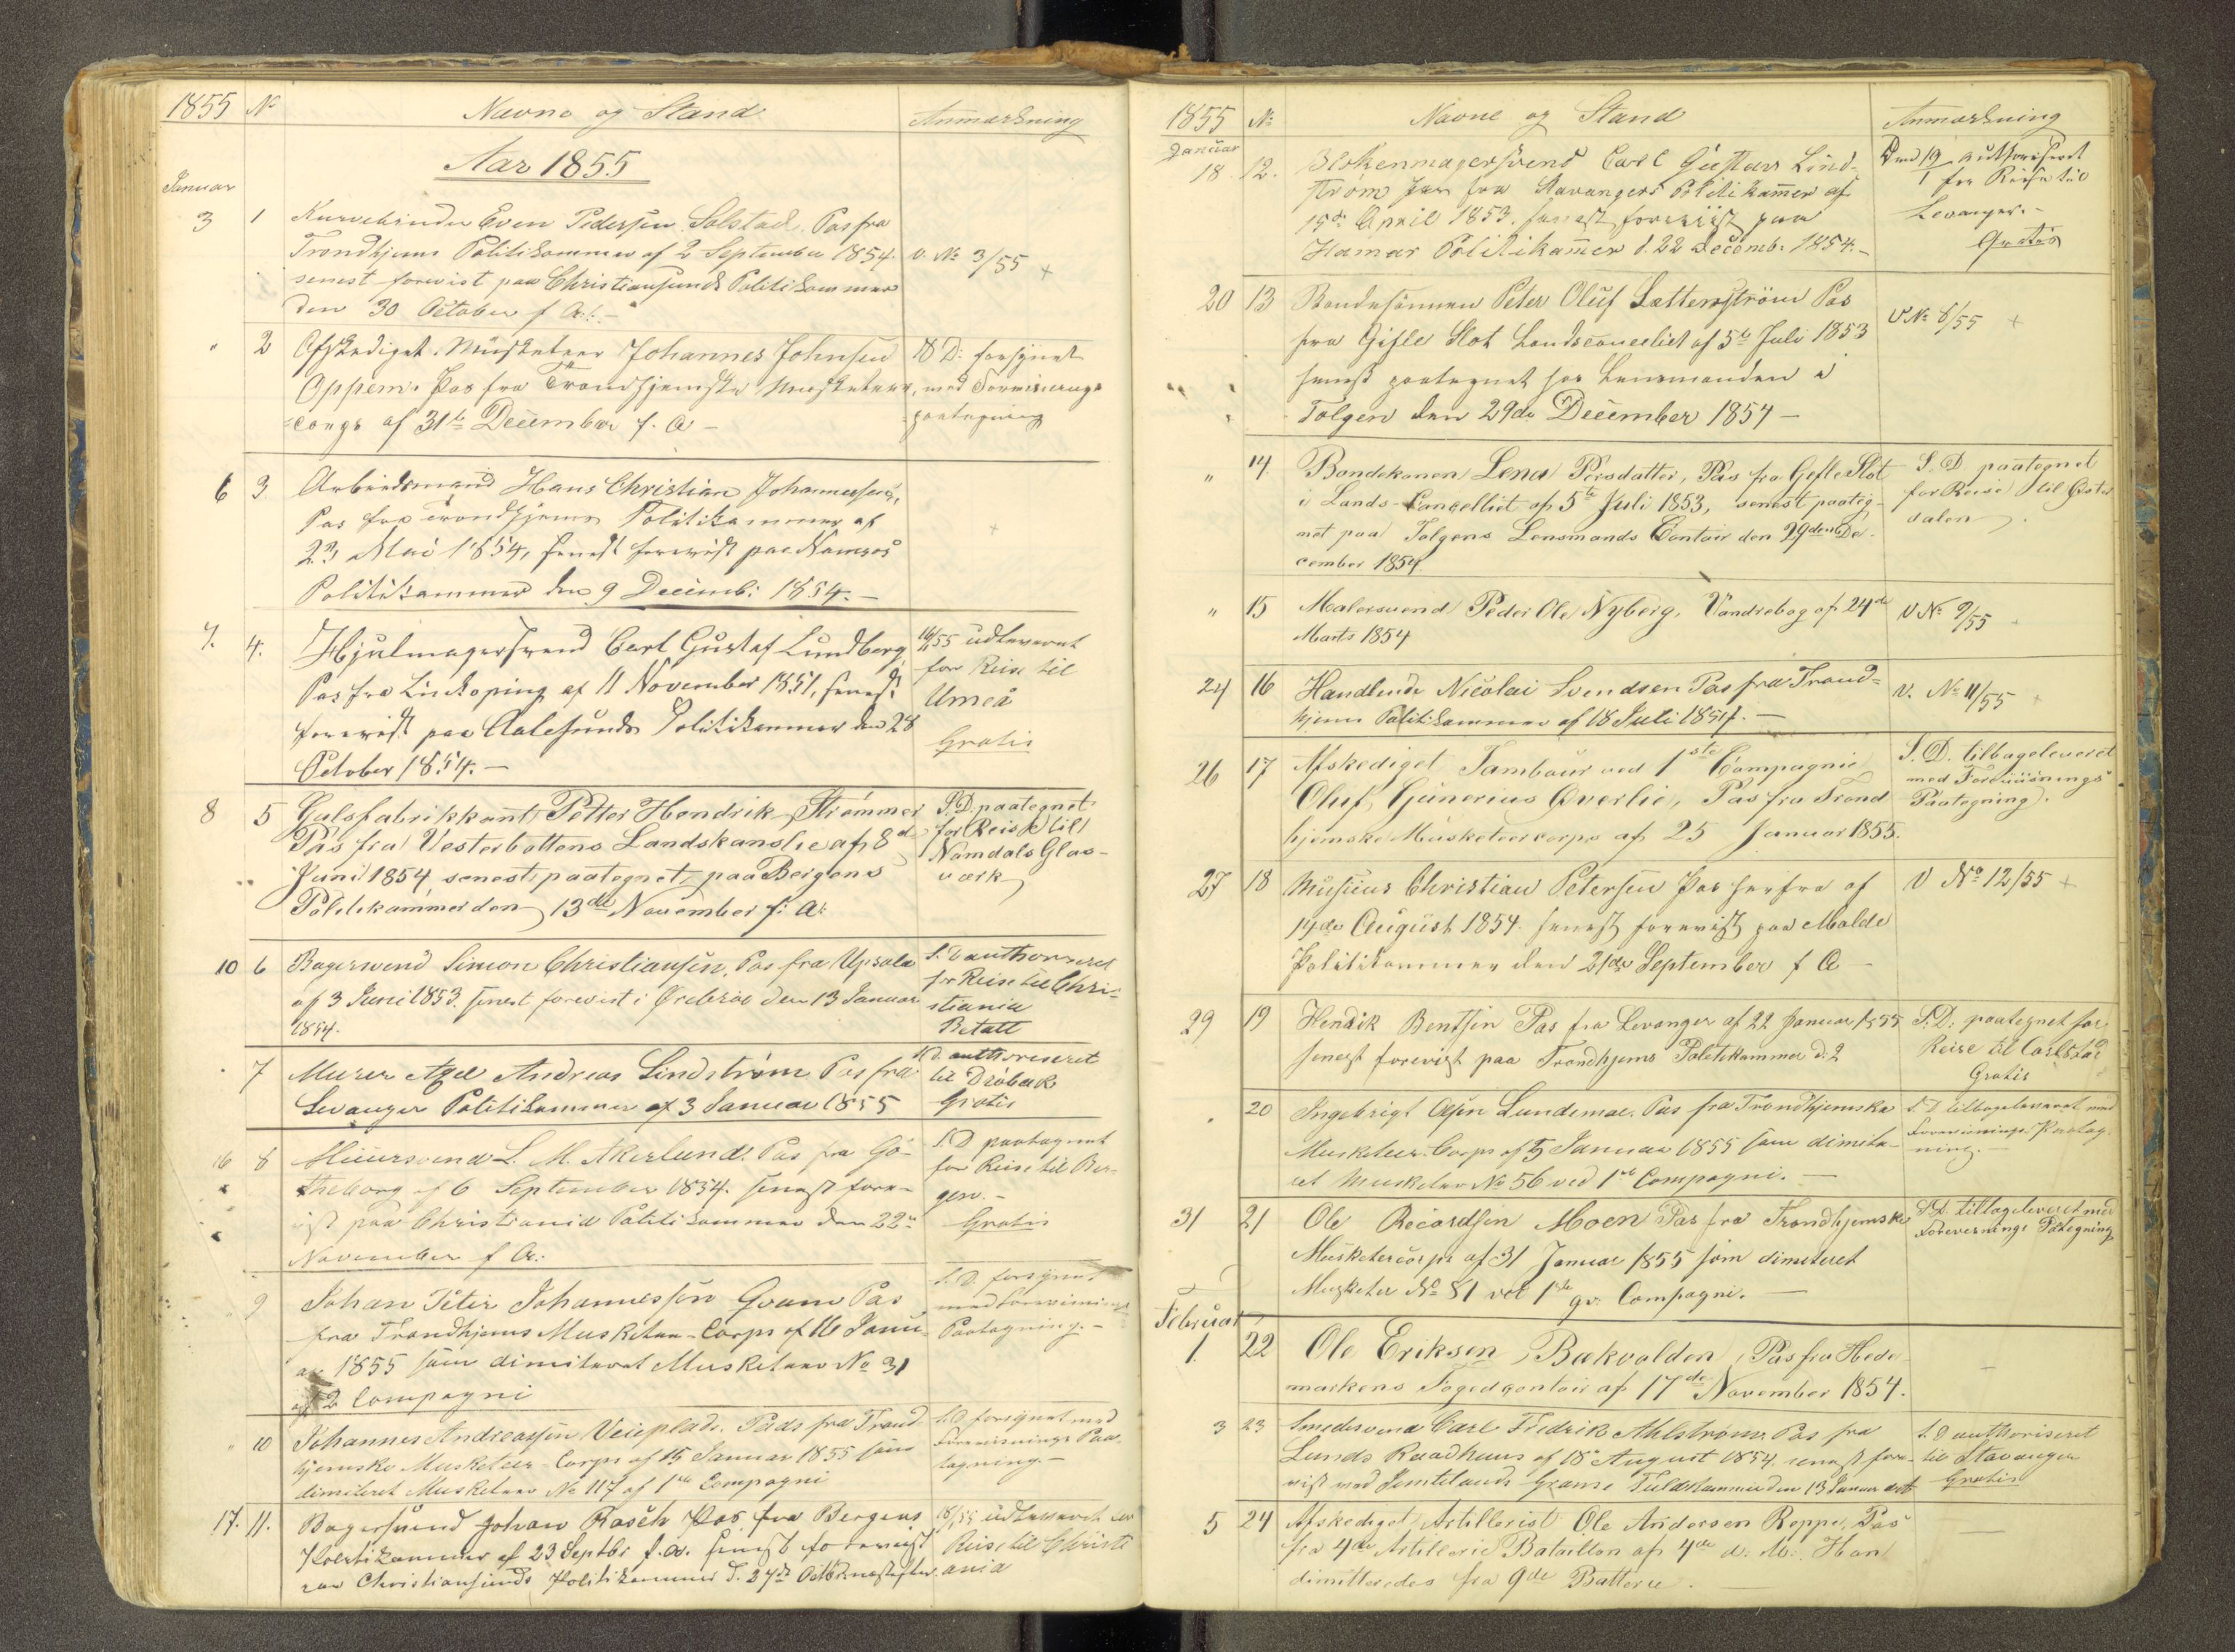 1855 No Navne og Stand Anmærkning
Aar 1855
Januar
3 1 Kurvebinder Even Pedersen Solstad. Pas fra
Trondhjems Politikammer af 2 September 1854. v. No 3/55 +
senest forevist paa Christiansunds Politikammer
den 30 October f. A.
" 2 Afskediget Musketeer Johannes Johnsen S D: forsynet
Oppem. Pas fra Trondhjemske Musketeer med Forevisnings
corps af 31te December f. A – paategning
6 3. Arbeidsmand Hans Christian Johannessen,
Pas fra Trondhjems Politikammer af
23 Mai 1854, senest forevist paa Namsos +
Politikammer den 9 Decemb: 1854. –
7. 4. Hjulmagersvend Carl Gustaf Lundberg, udleveret
Pas fra Linkoping af 11 November 1851, senest for Reise til
forevist paa Aalesunds Politikammer den 28 Umeå
October 1854. – Gratis
8 5 Galsfabrikkant Petter Hendrik Strömmer S.D. paategnet
Pas fra Vesterbottens Landskanslie af 8de for Reise til
Juni 1854, senest paategnet paa Bergens Namdals Glas-
Politikammer den 13de November f. A. værk
10 6 Bagersvend Simon Christiansen, Pas fra Upsala S. D authoriseret
af 3 Juni 1853. senest forevist i Ørebroe den 13 Januar for Reise til Chri-
1854. stiania
Betalt
7 Murer Axel Andreas Lindstrøm Pas fra S D. authoriseret
Levanger Politikammer af 3 Januar 1855 til Drøbak
Gratis
16 8 Muursvend L. M. Åkerlund. Pas fra Gö- S. D paategnet
theborg af 6 September 1854. senest fore- for Reise til Ber-
vist paa Christiania Politikammer den 22de gen. –
November f A: Gratis
9 Johan Peter Johannessen Qvam Pas S. D. forsynet
fra Trondhjems Musketeer-Corps af 16 Janu- med Forevisnings
ar 1855 som dimiteret Musketeer No 31 Paategning. –
af 2 Compagni
" 10 Johannes Andreassen Veieplads. Pads fra Trond S. D. forsynet med
hjemske Musketeer-Corps af 15 Januar 1855 som Forevisnings Paa-
dimiteret Musketeer No 117 af 1ste Compagni tegning. –
17. 11. Bagersvend Johan Rasch Pas fra Bergens udleveret for
Politikammer af 23 Septbr f. A. senest forevist Reise til Christi
paa Christiansunds Politikammer d. 27de Octbr næstefter. ania
1855 No Navne og Stand Anmærkning
Januar
18. 12. Carl Gustav Lind- Den 19/1 authoriseret
ström Pas fra Stavangers Politikamer af for Reise til
15de April 1853. senest foreviist paa Levanger. –
Hamar Politikamer d. 22 Decemb. 1854. – Gratis
20 13 Bondesønnen Peter Oluf Sætterström Pas
fra Gifle Slot Landscancelliet af 5te Juli 1853 V No 8/55 +
senest paategnet hos Lensmanden i
Tolgen den 29de December 1854 –
" 14 Bondekonen Lena Persdatter, Pas fra Gefle Slot S. D paategnet
i Lands-Cancelliet af 5te Juli 1853, senest paateg- for Reise til Øster
net paa Tolgens Lensmands Contoir den 29de De- dalen.
cember 1854.
" 15 Malersvend Peder Ole Nyberg, Vandrebog af 24de V No 9/55
Marts 1854
24 16 Handlende Nicolai Svendsen Pas fra Trond- V. No 11/55 +
hjems Politikammer af 18 Juli 1854. –
26 17 Afskediget Tambour ved 1ste Compagnie S. D. tilbageleveret
Oluf Gunerius Øverlie, Pas fra Trond med Foreviisnings
hjemske Musketeercorps af 25 Januar 1855. Paategning.
27 18 Musicus Christian Petersen Pas herfra af V No 12/55 +
14de August 1854. senest forevist paa Molde
Politikammer den 21de September f A –
29 19 Hendrik Bentsen Pas fra Levanger af 22 Januar 1855 S. D: paategnet for
senest forevist paa Trondhjems Politikammer d. 2 Reise til Carlstad
Gratis
" 20 Ingebrigt Olsen Lundemoe. Pas fra Trondhjemske S. D tilbageleveret med
Musketeer-Corps af 5 Januar 1855 som dimite- Forevisnings Paateg-
ret Musketeer No 56 ved 1ste Compagni. – ning. –
31 21 Ole Moen Pas fra Trondhjemske S. D. tilbageleveret med
Musketeercorps af 31 Januar 1855 som dimiteret Forevisnings Pategning
Musketer No 81 ved 1ste gv. Compagni. –
Februar
1. 22 Ole Eriksen Bækvolden, Pas fra Hede- –
markens Fogedcontoir af 17de November 1854.
3 23 Smedsvend Carl Fredrik Ahlstrøm Pas fra S. D authoriseret
Lunds Raadhuus af 18 August 1854, senest fore- til Stavanger
vist ved Jemtelands Grænse Toldkammer den 13 Januar Gratis
5 24 Afskediget Artillerist Ole Andersen Reppe, Pas –
fra 4de Artillerie Bataillon af 4de d: M: Han
dimitteredes fra 9de Batterie.